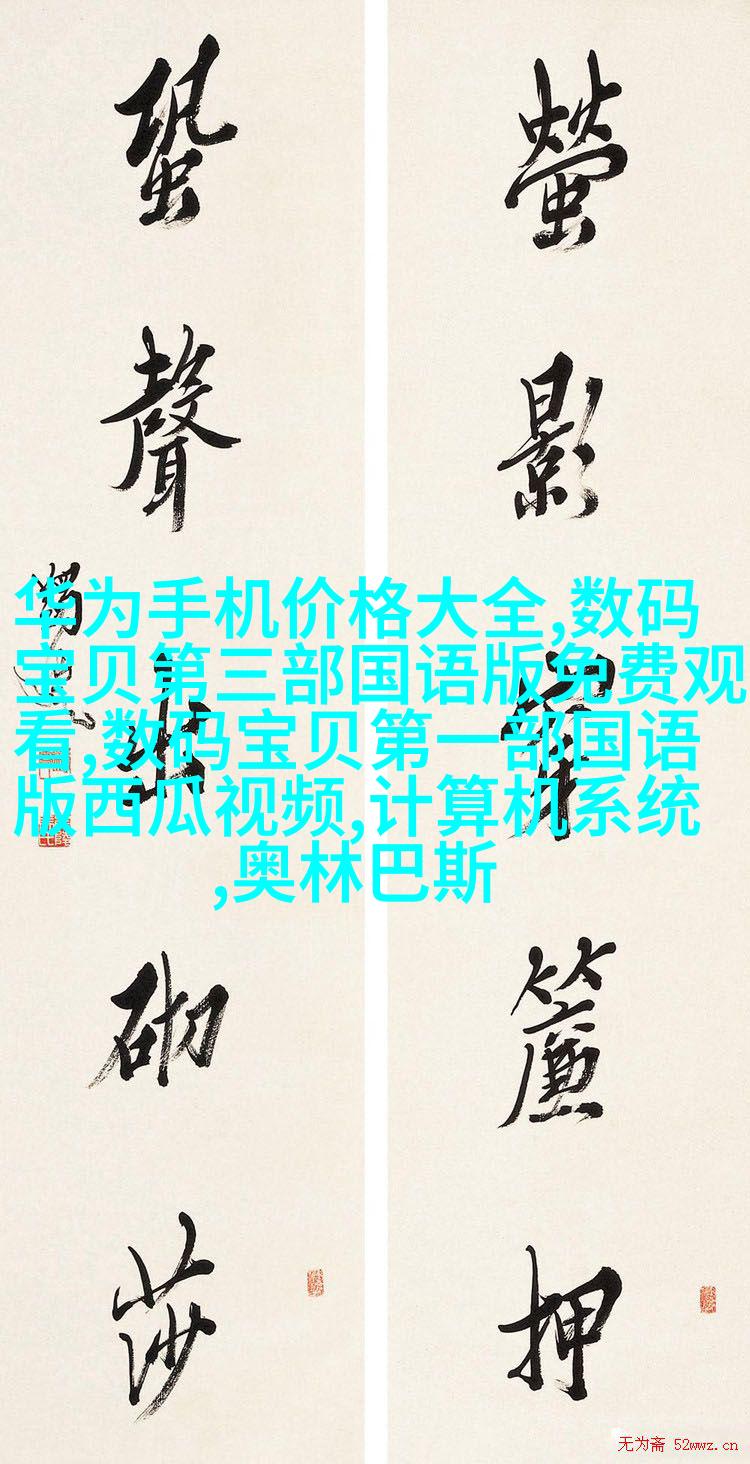 螢
影
簾
押
蛩
聲
砌
莎
华为手机价格大全,数码
宝贝第三部国语版免费观
看,数码宝贝第一部国语
版西瓜视频,计算机系统
,奥林巴斯
无为斋 52wwz.cn